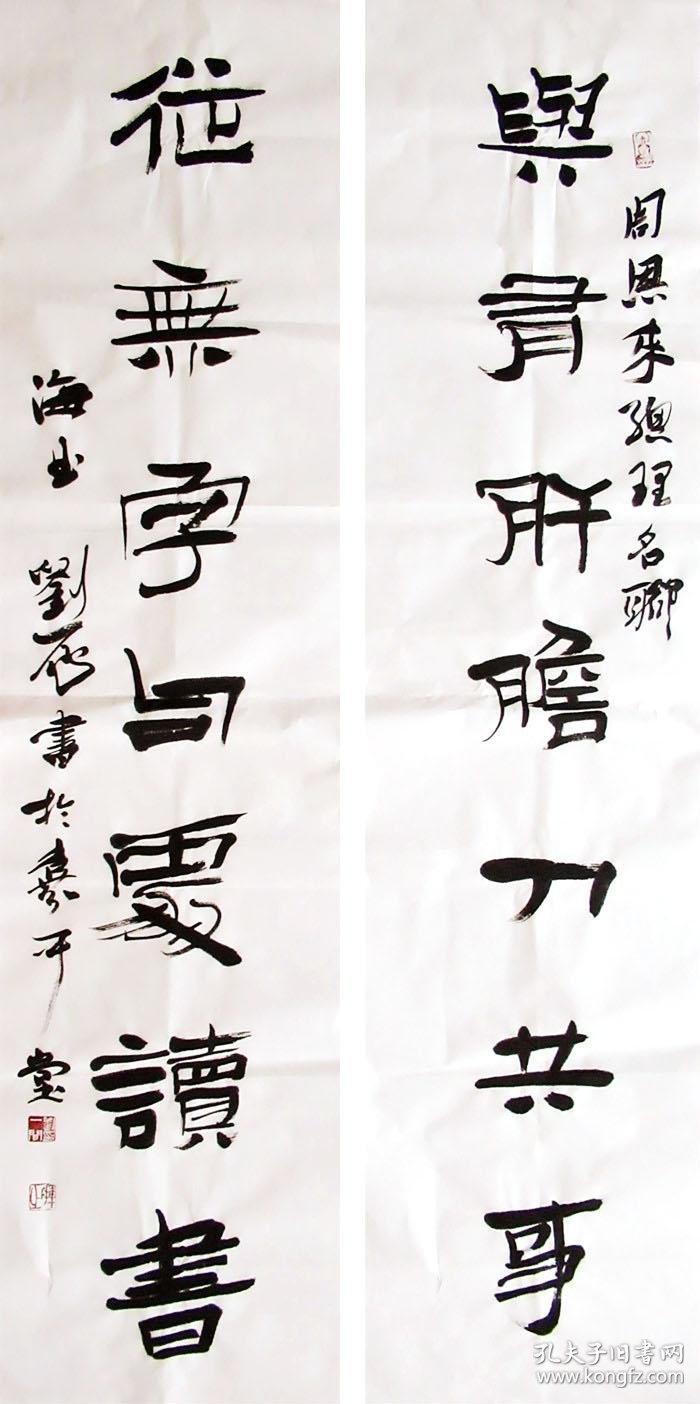 周恩来總理名聯
與有肝膽人共事
從無字句處讀書
海出 劉辰書於養平堂
孔夫子旧书网
www.kongfz.com